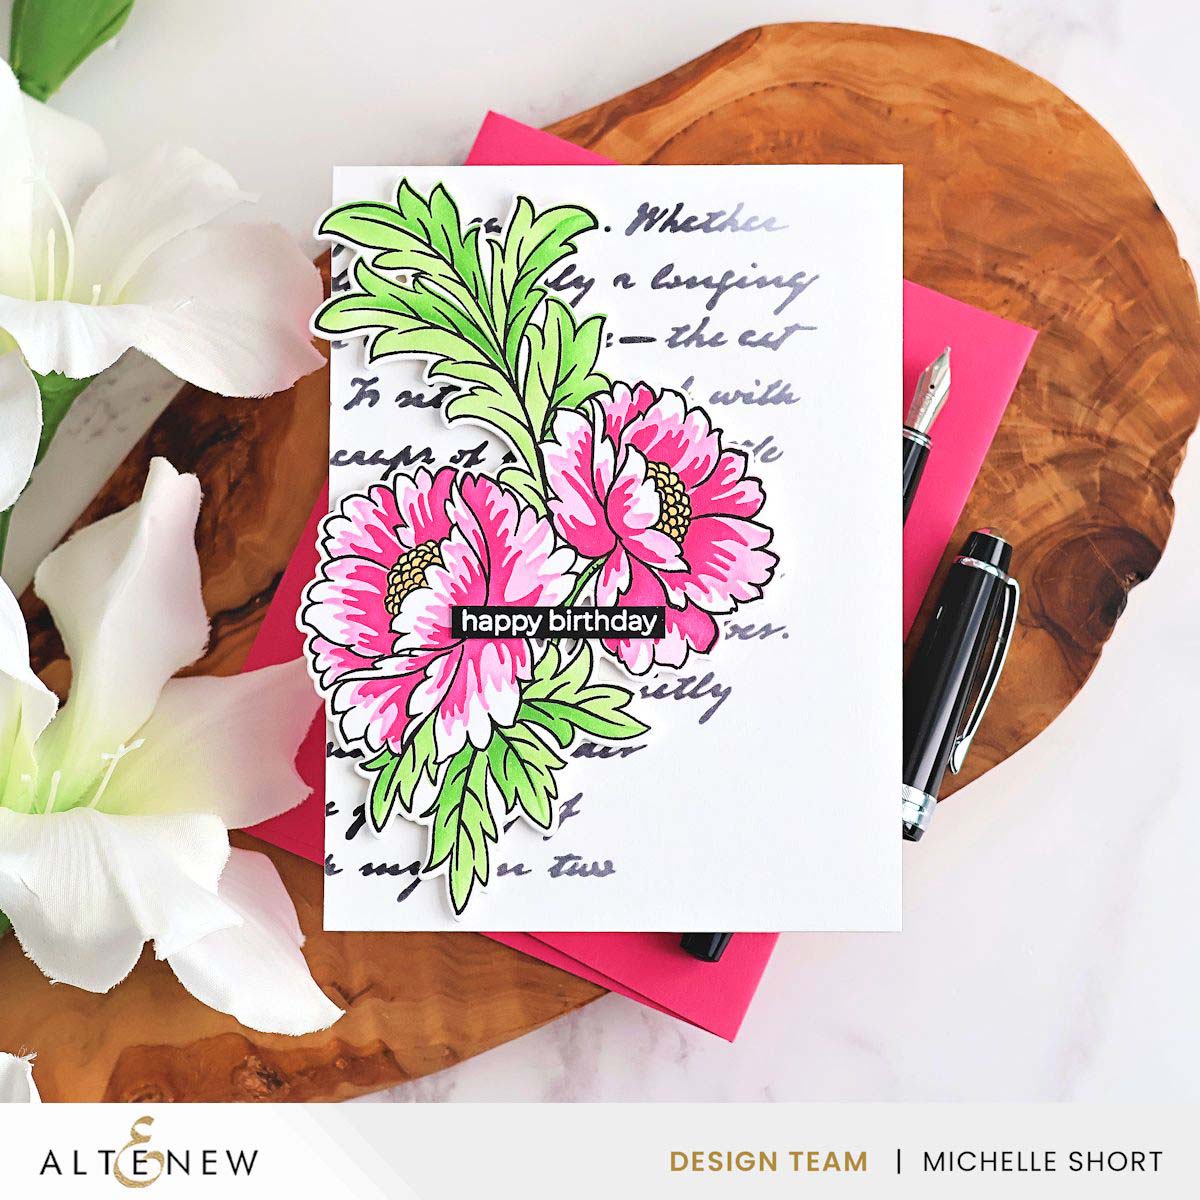 . Whether
ly a longing
— the act
To set with
scraps of
happy birthday
ves.
ietly
my two
ALTENEW
DESIGN TEAM | MICHELLE SHORT